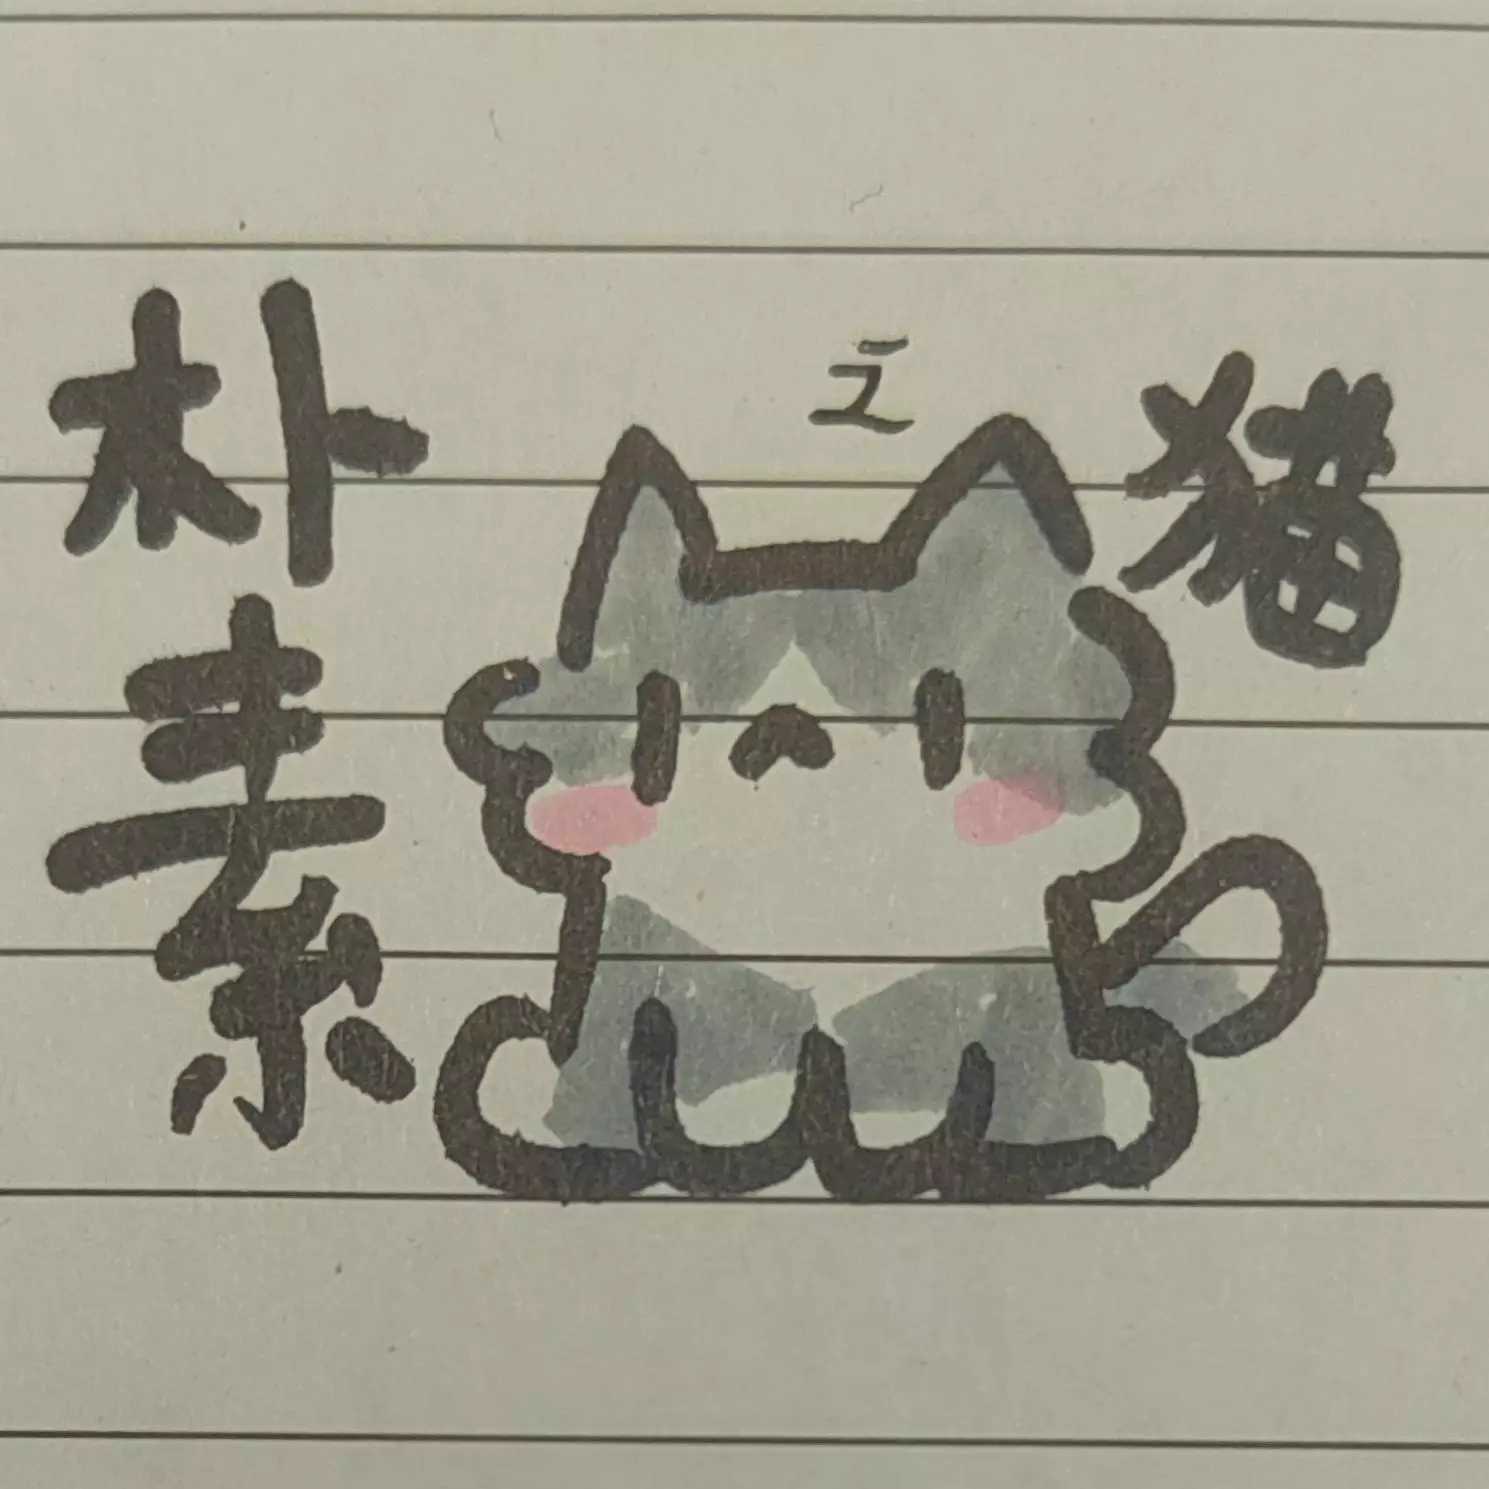 朴素
之
猫